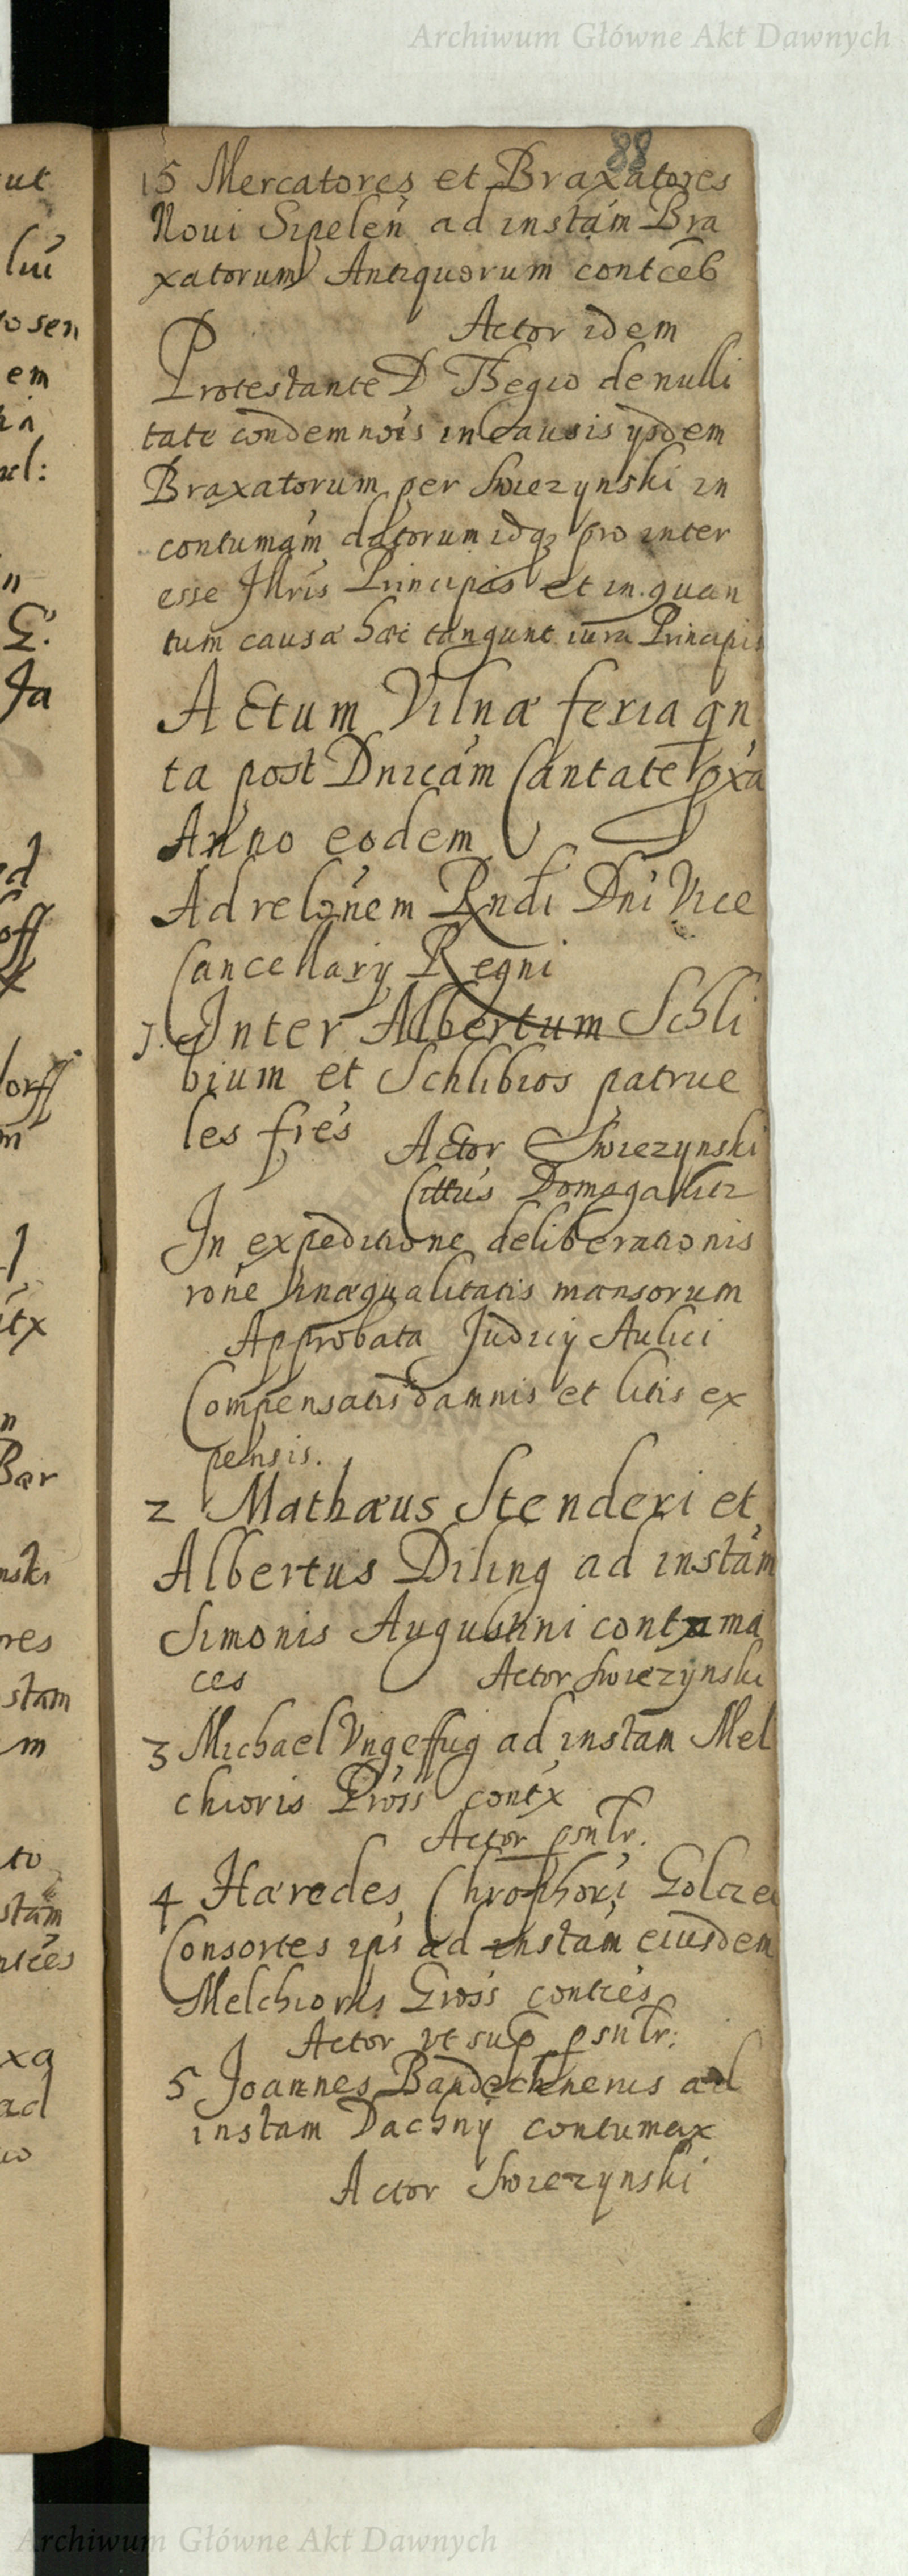 Archiwum Główne Akt Dawnych
88
15 Mercatores et Braxatores
Noui Sipelen̄ ad instām Bra
xatorum Antiquorum contceb
Actor idem
Protestante D Thegio de nulli
tate condemnōis in causis ysdem
Braxatorum per Swiezynski in
contumām datorum idq₃ pro inter
esse Illris Principis et in quan
tum causæ hæc tangunt iura Principis
Actum Vilnæ feria qn
ta post Dnicām Cantate pxa
Anno eodem
Ad relōnem Rndi Dni Vice
Cancellary Regni
1. Inter Albertum Schli
bium et Schlibios patrue
les frēs
Actor Swiezynski
Cittūs Domaga
In expeditione deliberationis
rōne inæqualitatis mansorum
Approbata Judicÿ Aulici
Compensatis damnis et litis ex
pensis.
2 Mathæus Stenderi et
Albertus Diling ad instām
Simonis Augustini contuma
ces
Actor Swiezynski
3 Michael Vngeffug ad instām Mel
chioris Gross contx
Actor psntr.
4 Hæredes Chrophori Golcze
Consortes ipī ad instām eiusdem
Melchioris Gross contces
Actor vt sup psntr:
5 Joannes Bandechnerus ad
instam Dachnÿ contumax
Actor Swiezynski
Archiwum Główne Akt Dawnych